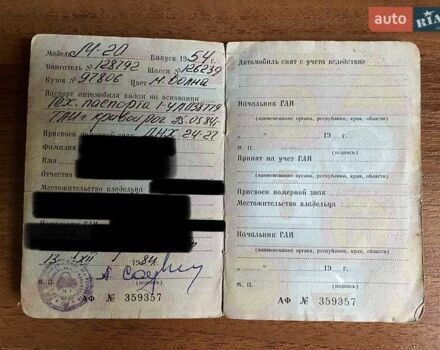 auto RIA
Модель М-20 Выпуск 1954 г.
Двигатель № 128792 Шасси № 126239
Кузов № 97806 Цвет м. волна
Паспорт автомобиля выдан на основании
Тех. паспорта
ГАИ г Кривой рог 25.05.84
Присвоен номерной знак 24-22
Фамилия
Имя
Отчество
Местожительство владельца
13 XII 1984 г.
М. П. (подпись)
АФ № 359357
Автомобиль снят с учета вследствие
Начальник ГАИ
(наименование органа, республики, края, области)
" " 19 г.
М. П. (подпись)
Принят на учет ГАИ
(наименование органа, республики, края, области)
Присвоен номерной знак
Местожительство владельца
Начальник ГАИ
(наименование органа, республики, края, области)
" " 19 г.
М. П. (подпись)
АФ № 359357